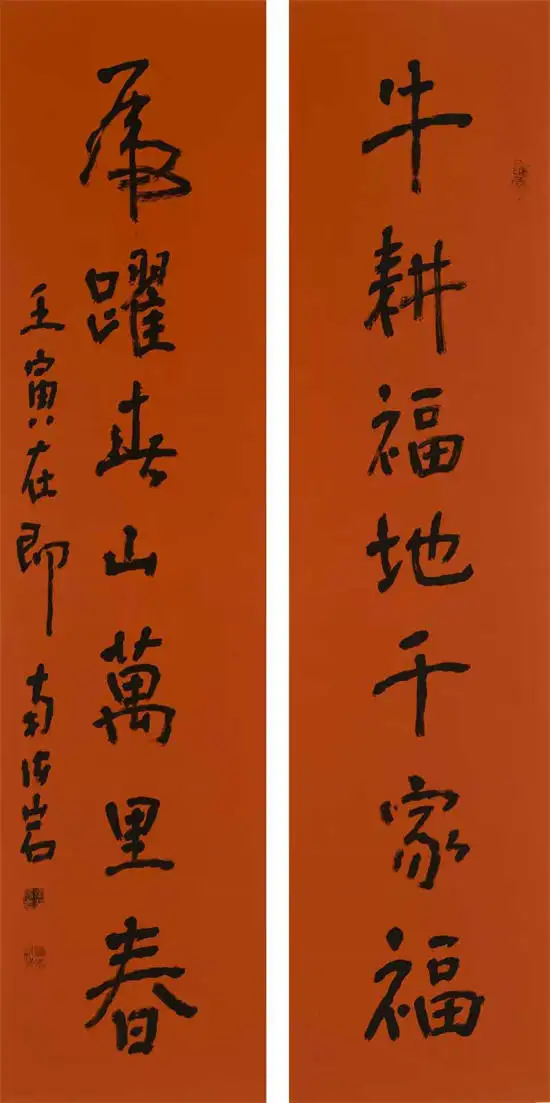 牛耕福地千家福
虎躍春山萬里春
壬寅在即 南海岩